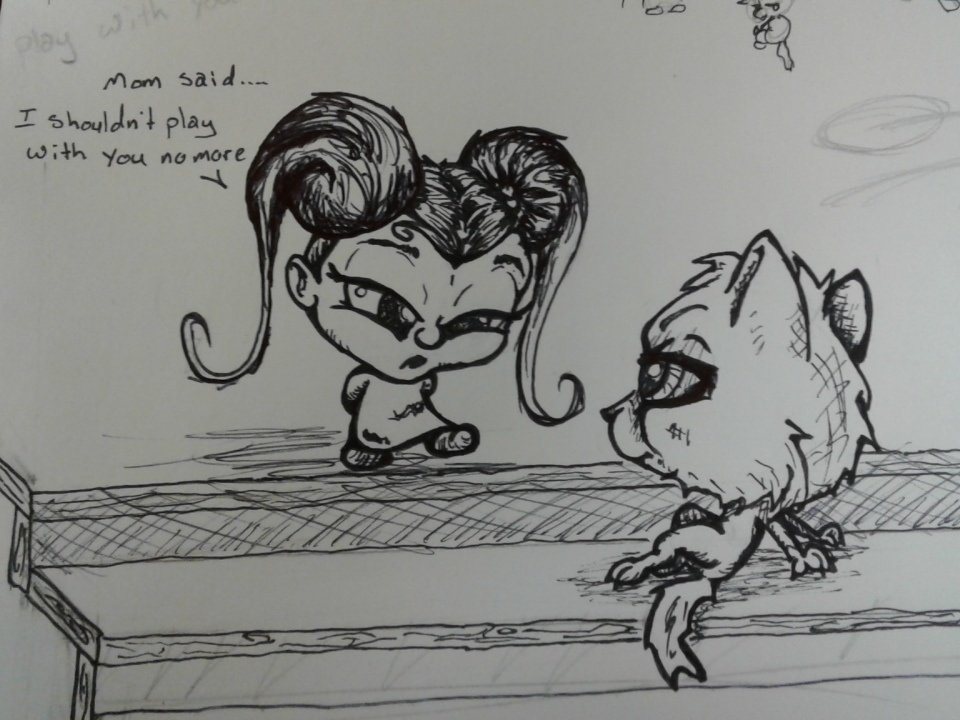 play with you
Mom said....
I shouldn't play
with you no more